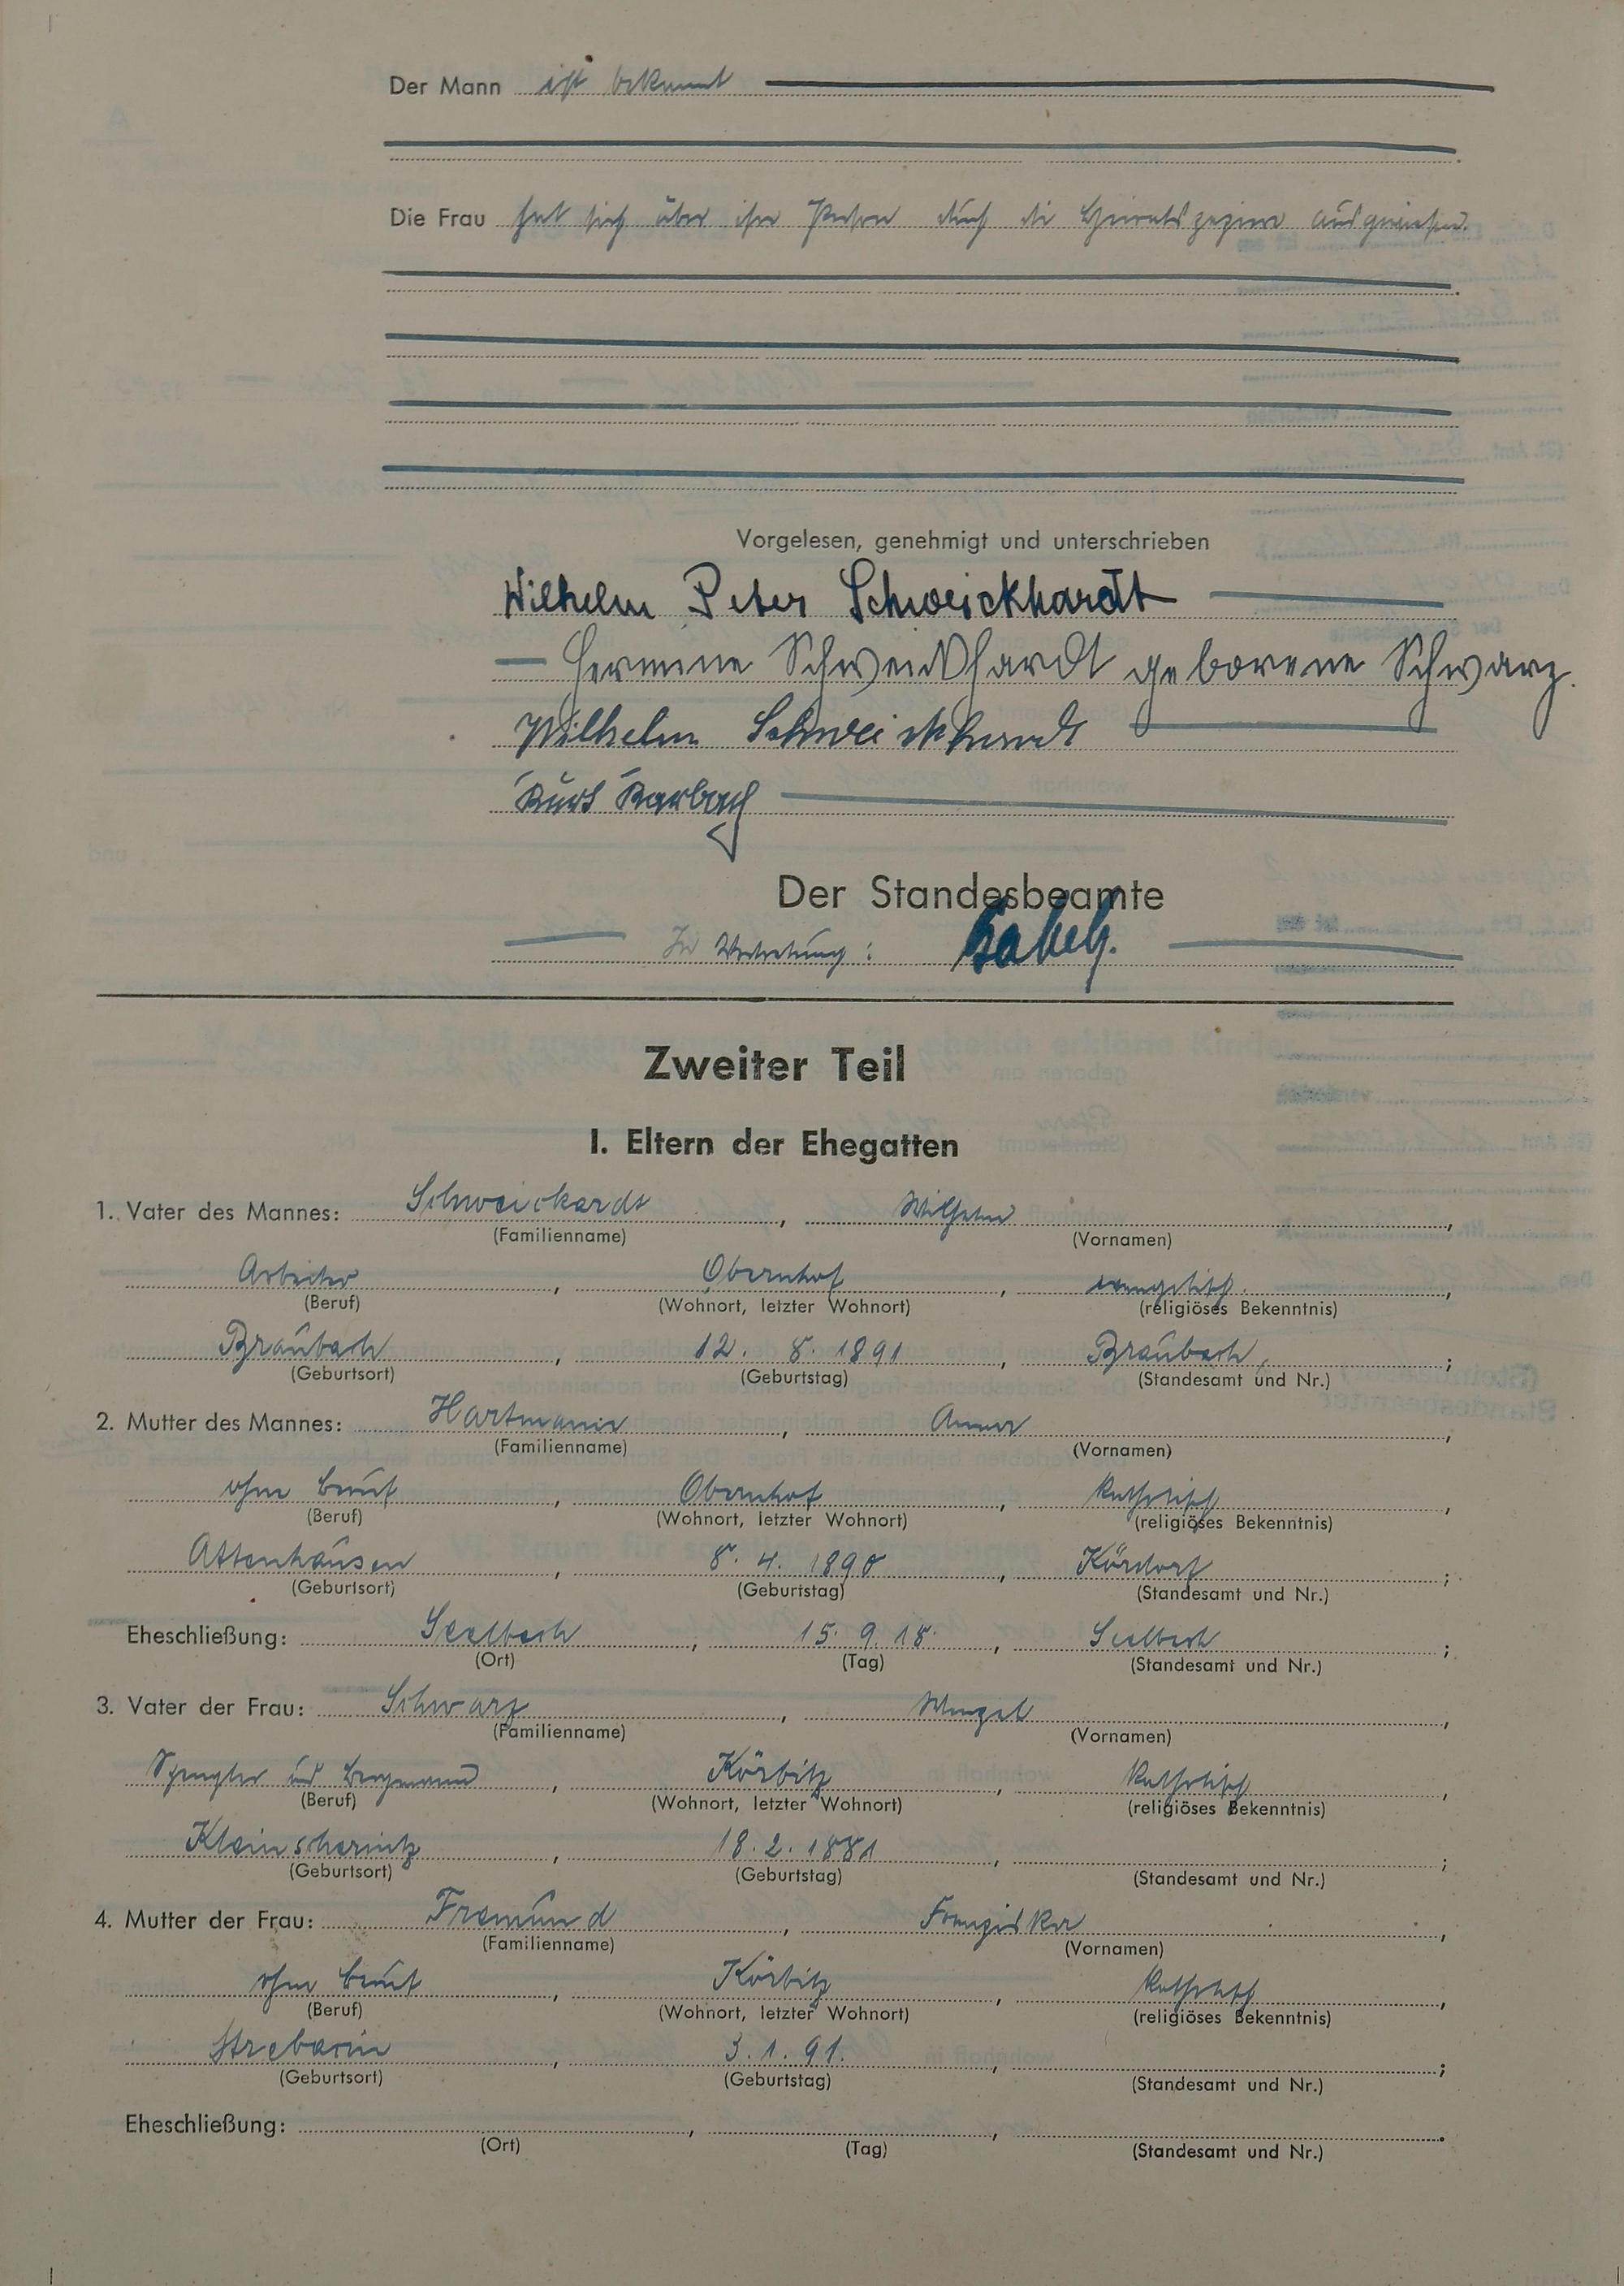 Der Mann ist bekannt
Die Frau hat sich über ihre Person durch die ausgewiesen.
Vorgelesen, genehmigt und unterschrieben
Wilhelm Peter Schweickhardt
Hermine Schweickhardt geborene Schwarz.
Wilhelm Schweickhardt
Kurt Karbach
Der Standesbeamte
In Vertretung:
Zweiter Teil
I. Eltern der Ehegatten
1. Vater des Mannes: Schweickardt, Wilhelm,
(Familienname) (Vornamen)
Arbeiter, Obernhof, evangelisch.,
(Beruf) (Wohnort, letzter Wohnort) (religiöses Bekenntnis)
Braubach, 12. 8. 1891, Braubach, ;
(Geburtsort) (Geburtstag) (Standesamt und Nr.)
2. Mutter des Mannes: Hartmann, Anna,
(Familienname) (Vornamen)
ohne Beruf, Obernhof, katholisch,
(Beruf) (Wohnort, letzter Wohnort) (religiöses Bekenntnis)
Attenhausen, 8. 4. 1890, Kördorf;
(Geburtsort) (Geburtstag) (Standesamt und Nr.)
Eheschließung: Seelbach, 15. 9. 18., Seelbach;
(Ort) (Tag) (Standesamt und Nr.)
3. Vater der Frau: Schwarz, Wenzel,
(Familienname) (Vornamen)
Spengler und Bergmann, Körbitz, katholisch,
(Beruf) (Wohnort, letzter Wohnort) (religiöses Bekenntnis)
18. 2. 1881, ;
(Geburtsort) (Geburtstag) (Standesamt und Nr.)
4. Mutter der Frau: Fremund, Franziska,
(Familienname) (Vornamen)
ohne Beruf, Körbitz, katholisch,
(Beruf) (Wohnort, letzter Wohnort) (religiöses Bekenntnis)
3. 1. 91., ;
(Geburtsort) (Geburtstag) (Standesamt und Nr.)
Eheschließung: , , .
(Ort) (Tag) (Standesamt und Nr.)